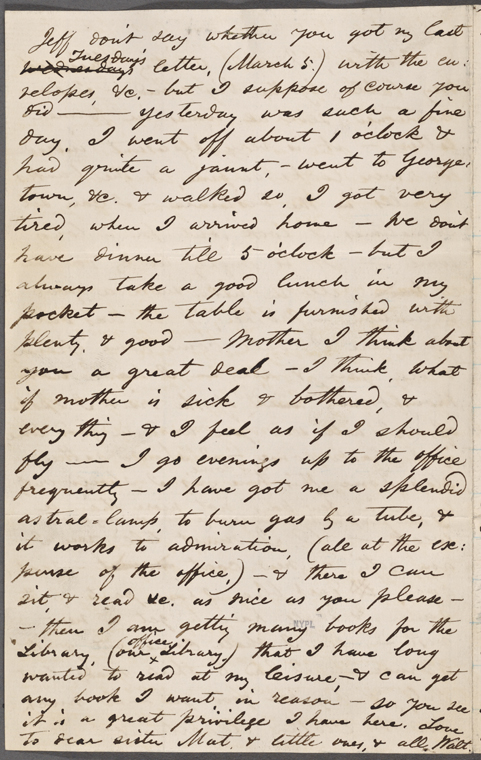 Jeff don't say whether you got my last
Tuesday's
Wednesdays letter, (March 5.) with the en:
velopes, &c. - but I suppose of course you
did —— yesterday was such a fine
day, I went off about 1 o'clock &
had quite a jaunt, - went to George:
town, &c. & walked so, I got very
tired, when I arrived home — We don't
have dinner till 5 o'clock — but I
always take a good lunch in my
pocket — the table is furnished with
plenty, & good — Mother I think about
you a great deal — I think, what
if mother is sick & bothered, &
every thing — & I feel as if I should
fly —— I go evenings up to the office
frequently — I have got me a splendid
astral-lamp, to burn gas by a tube, &
it works to admiration, (all at the ex:
pense of the office,) — & there I can
sit, & read &c. as nice as you please —
NYPL
— then I am getting many books for the
office
Library, (our Library,) that I have long
wanted to read at my leisure, — & can get
any book I want, in reason — so you see
it is a great privilege I have here. Love
to dear sister Mat. & little ones, & all. Walt.